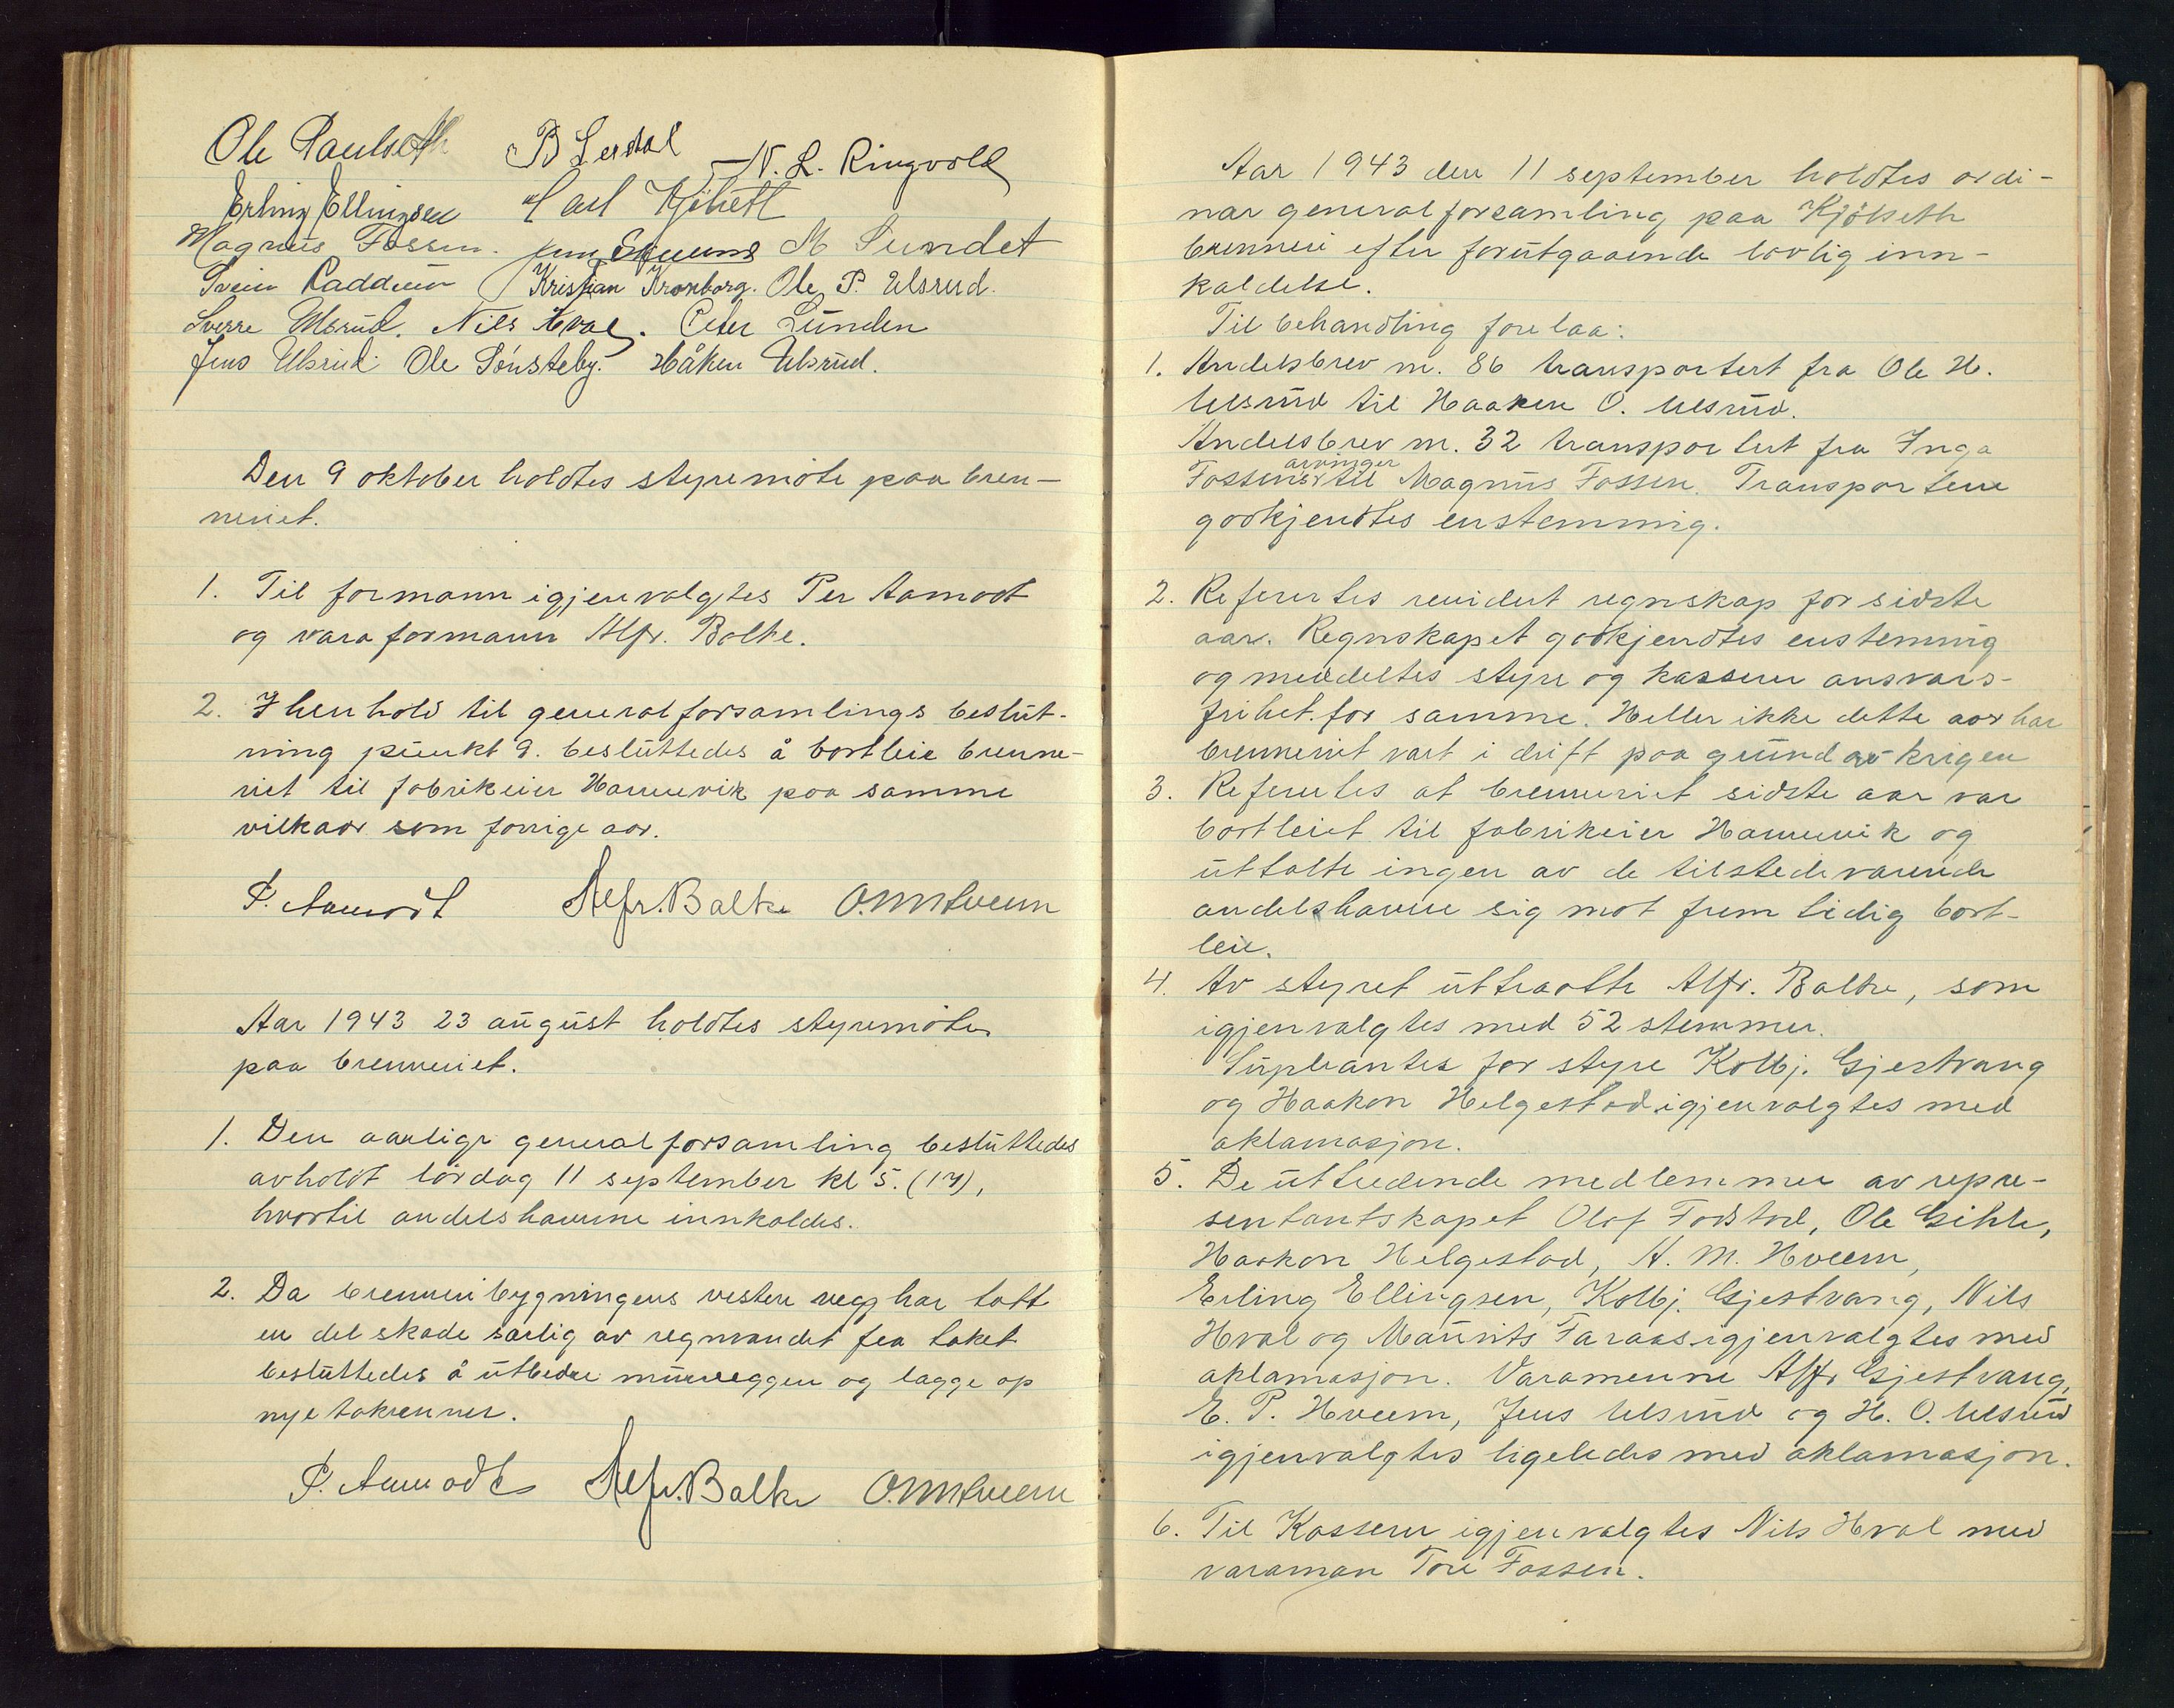 Ole Paulseth B Lerdal N. L. Ringvold
Erling Ellingsen Carl Kjölseth
Magnus Fossen. M Sundet
Svein Raddum Kristian Kronborg. Ole P. Ulsrud.
Sverre Ulsrud. Nils Hval. Peter Lunden
Jens Ulsrud. Ole Sönsteby. Håken Ulsrud.
Den 9 oktober holdtes styremöte paa bren-
neriet.
1. Til formann igjenvalgtes Per Aamodt
og varaformann Alfr. Balke.
2. I henhold til generalforsamlings beslut-
ning punkt 9. besluttedes å bortleie brenne-
riet til fabrikeier Hammervik paa samme
vilkaar som forrige aar.
P. Aamodt Alfr. Balke O.M. Hveem
Aar 1943 23 august holdtes styremöte
paa brenneriet.
1. Den aarlige generalforsamling besluttedes
avholdt lördag 11 september kl 5. (17),
hvortil andelshaverne innkaldes.
2. Da brenneribygningens vestre vegg har tatt
en del skade særlig av regnvandet fra taket
besluttedes å utbedre murveggen og lægge op
nye takrenner.
P. Aamodt Alfr. Balke O.M. Hveem
Aar 1943 den 11 september holdtes ordi-
nær generalforsamling paa Kjölseth
brenneri efter forutgaaende lovlig inn-
kaldelse.
Til behandling forelaa:
1. Andelsbrev nr. 86 transportert fra Ole H.
Ulsrud til Haaken O. Ulsrud.
Andelsbrev nr. 32 transportert fra Inga
Fossens arvinger til Magnus Fossen. Transportene
godkjendtes enstemmig.
2. Refertes revidert regnskap for sidste
aar. Regnskapet godkjendtes enstemmig
og meddeltes styre og kasserer ansvars-
frihet for samme. Heller ikke dette aar har
brenneriet vært i drift paa grund av krigen
3. Refertes at brenneriet sidste aar var
bortleiet til fabrikeier Hammervik og
uttalte ingen av de tilstedeværende
andelshavere sig mot fremtidig bort-
leie.
4. Av styret uttraatte Alfr. Balke, som
igjenvalgtes med 52 stemmer.
Supleantes for styre Kolbj. Gjestvang
og Haakon Helgestad igjenvalgtes med
aklamasjon.
5. De uttredende medlemmer av repre-
sentantskapet Olaf Fodstad, Ole Gihle,
Haakon Helgestad, A. M. Hveem,
Erling Ellingsen, Kolbj. Gjestvang, Nils
Hval og Maurits Faraas igjenvalgtes med
aklamasjon. Varamenne Alfr Gjestvang,
E. P. Hveem, Jens Ulsrud og H. O. Ulsrud
igjenvalgtes ligeledes med aklamasjon.
6. Til Kasserer igjenvalgtes Nils Hval med
varaman Tore Fossen.